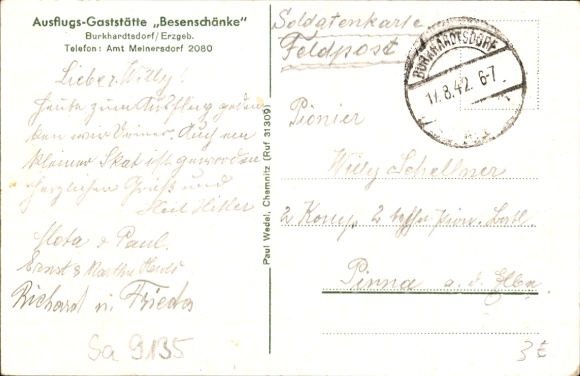 Ausflugs-Gaststätte „Besenschänke"
Burkhardtsdorf/Erzgeb.
Telefon: Amt Meinersdorf 2080
Lieber Willy!
Heute zum Ausflug
wir Deiner. Auch ein
kleiner Skat ist geworden
herzlichen Gruß und
Heil Hitler
Paul.
Ernst &
Richard u. Frieda
Sa 9135
Paul Wedel, Chemnitz (Ruf 31309)
Soldatenkarte
Feldpost
BURKHARDTSDORF
17.8.42. 6-7
Pionier
Willy Schellner
2 Komp. 2 Pion. Batl.
Pirna a. d. Elbe
3 €